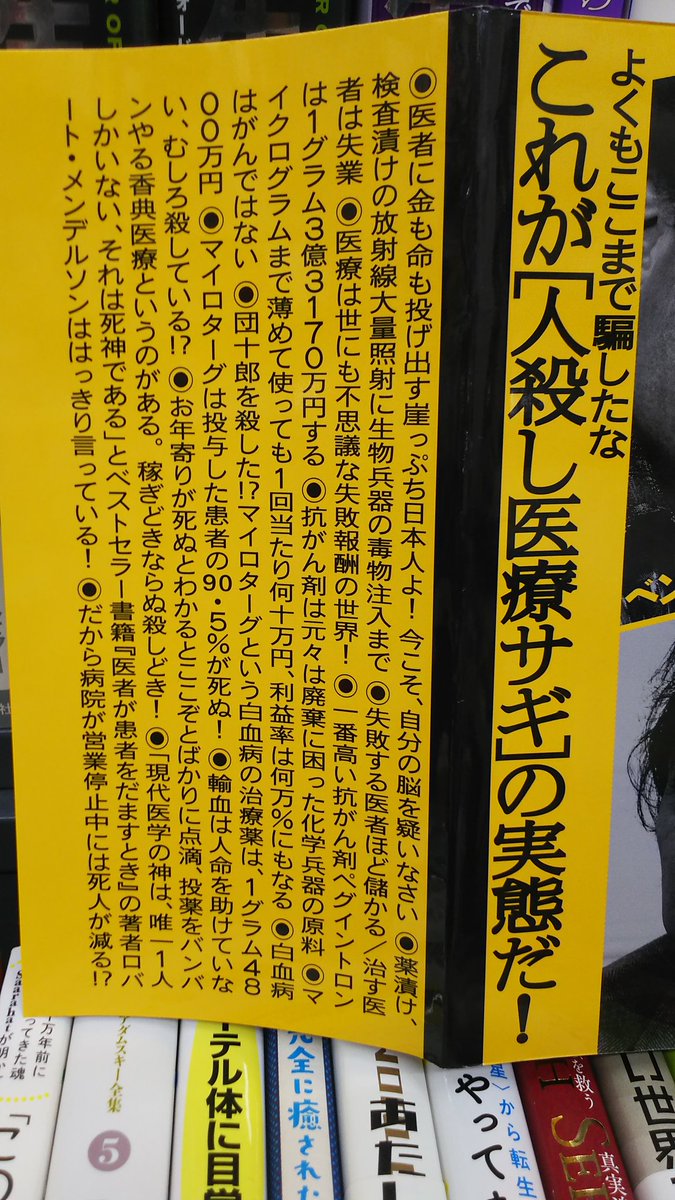 よくもここまで騙したな
これが[人殺し医療サギ]の実態だ!
◉医者に金も命も投げ出す崖っぷち日本人よ! 今こそ、自分の脳を疑いなさい ◉薬漬け、
検査漬けの放射線大量照射に生物兵器の毒物注入まで ◉失敗する医者ほど儲かる/治す医
者は失業 ◉医療は世にも不思議な失敗報酬の世界! ◉一番高い抗がん剤ペグイントロン
は1グラム3億3170万円する ◉抗がん剤は元々は廃棄に困った化学兵器の原料 ◉マ
イクログラムまで薄めて使っても1回当たり何十万円、利益率は何万%にもなる ◉白血病
はがんではない ◉団十郎を殺した!?マイロターグという白血病の治療薬は、1グラム48
00万円 ◉マイロターグは投与した患者の90・5%が死ぬ! ◉輸血は人命を助けていな
い、むしろ殺している!? ◉お年寄りが死ぬとわかるとここぞとばかりに点滴、投薬をバンバ
ンやる香典医療というのがある。稼ぎどきならぬ殺しどき! ◉「現代医学の神は、唯一1人
しかいない、それは死神である」とベストセラー書籍『医者が患者をだますとき』の著者ロバ
ート・メンデルソンははっきり言っている! ◉だから病院が営業停止中には死人が減る!?
ベン
を救う
真実
い世界
星〉から転生
やって
あたし
完全に癒された
ーテル体に目覚
アダムスキー全集
5
万年前に
ってきた魂
Saarahatが明か
「この